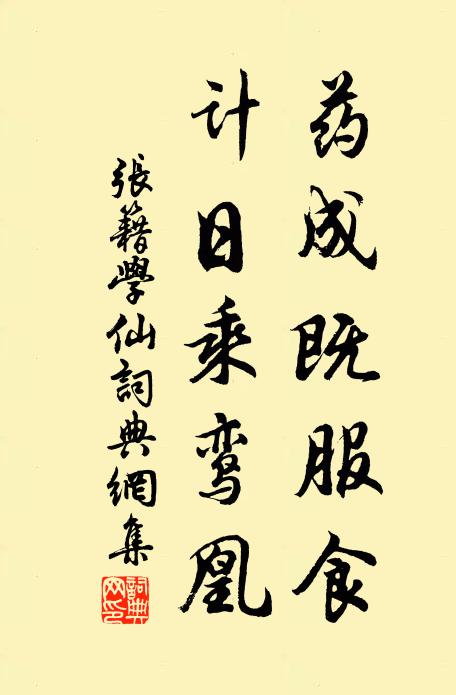 药成既服食
计日乘鸾凰
張籍學仙詞典網集
詞典网印